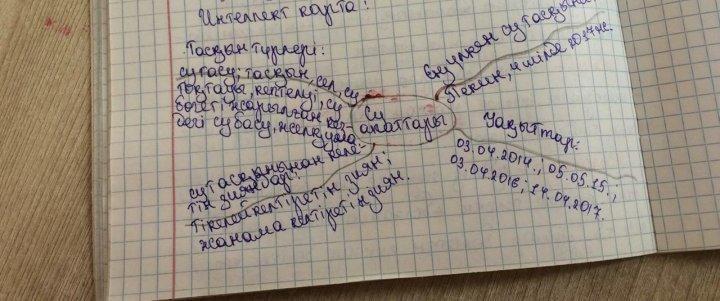 Интеллект карта:
Тасқын түрлері:
су тасу; тасқын, сел, су
тоқтауы, кептелуі; су
бөгеті жарылған кез-
дегі су басу, желқума.
Су
апаттары
Ең үлкен су тасқыны
Пекин, 4 шілде 2017ж.
Уақыттар:
03.04.2014.; 05.05.15.;
03.04.2016; 14.04.2017.
су тасқынынан келе-
тін зияндар:
тікелей келтіретін зиян;
жанама келтіретін зиян.